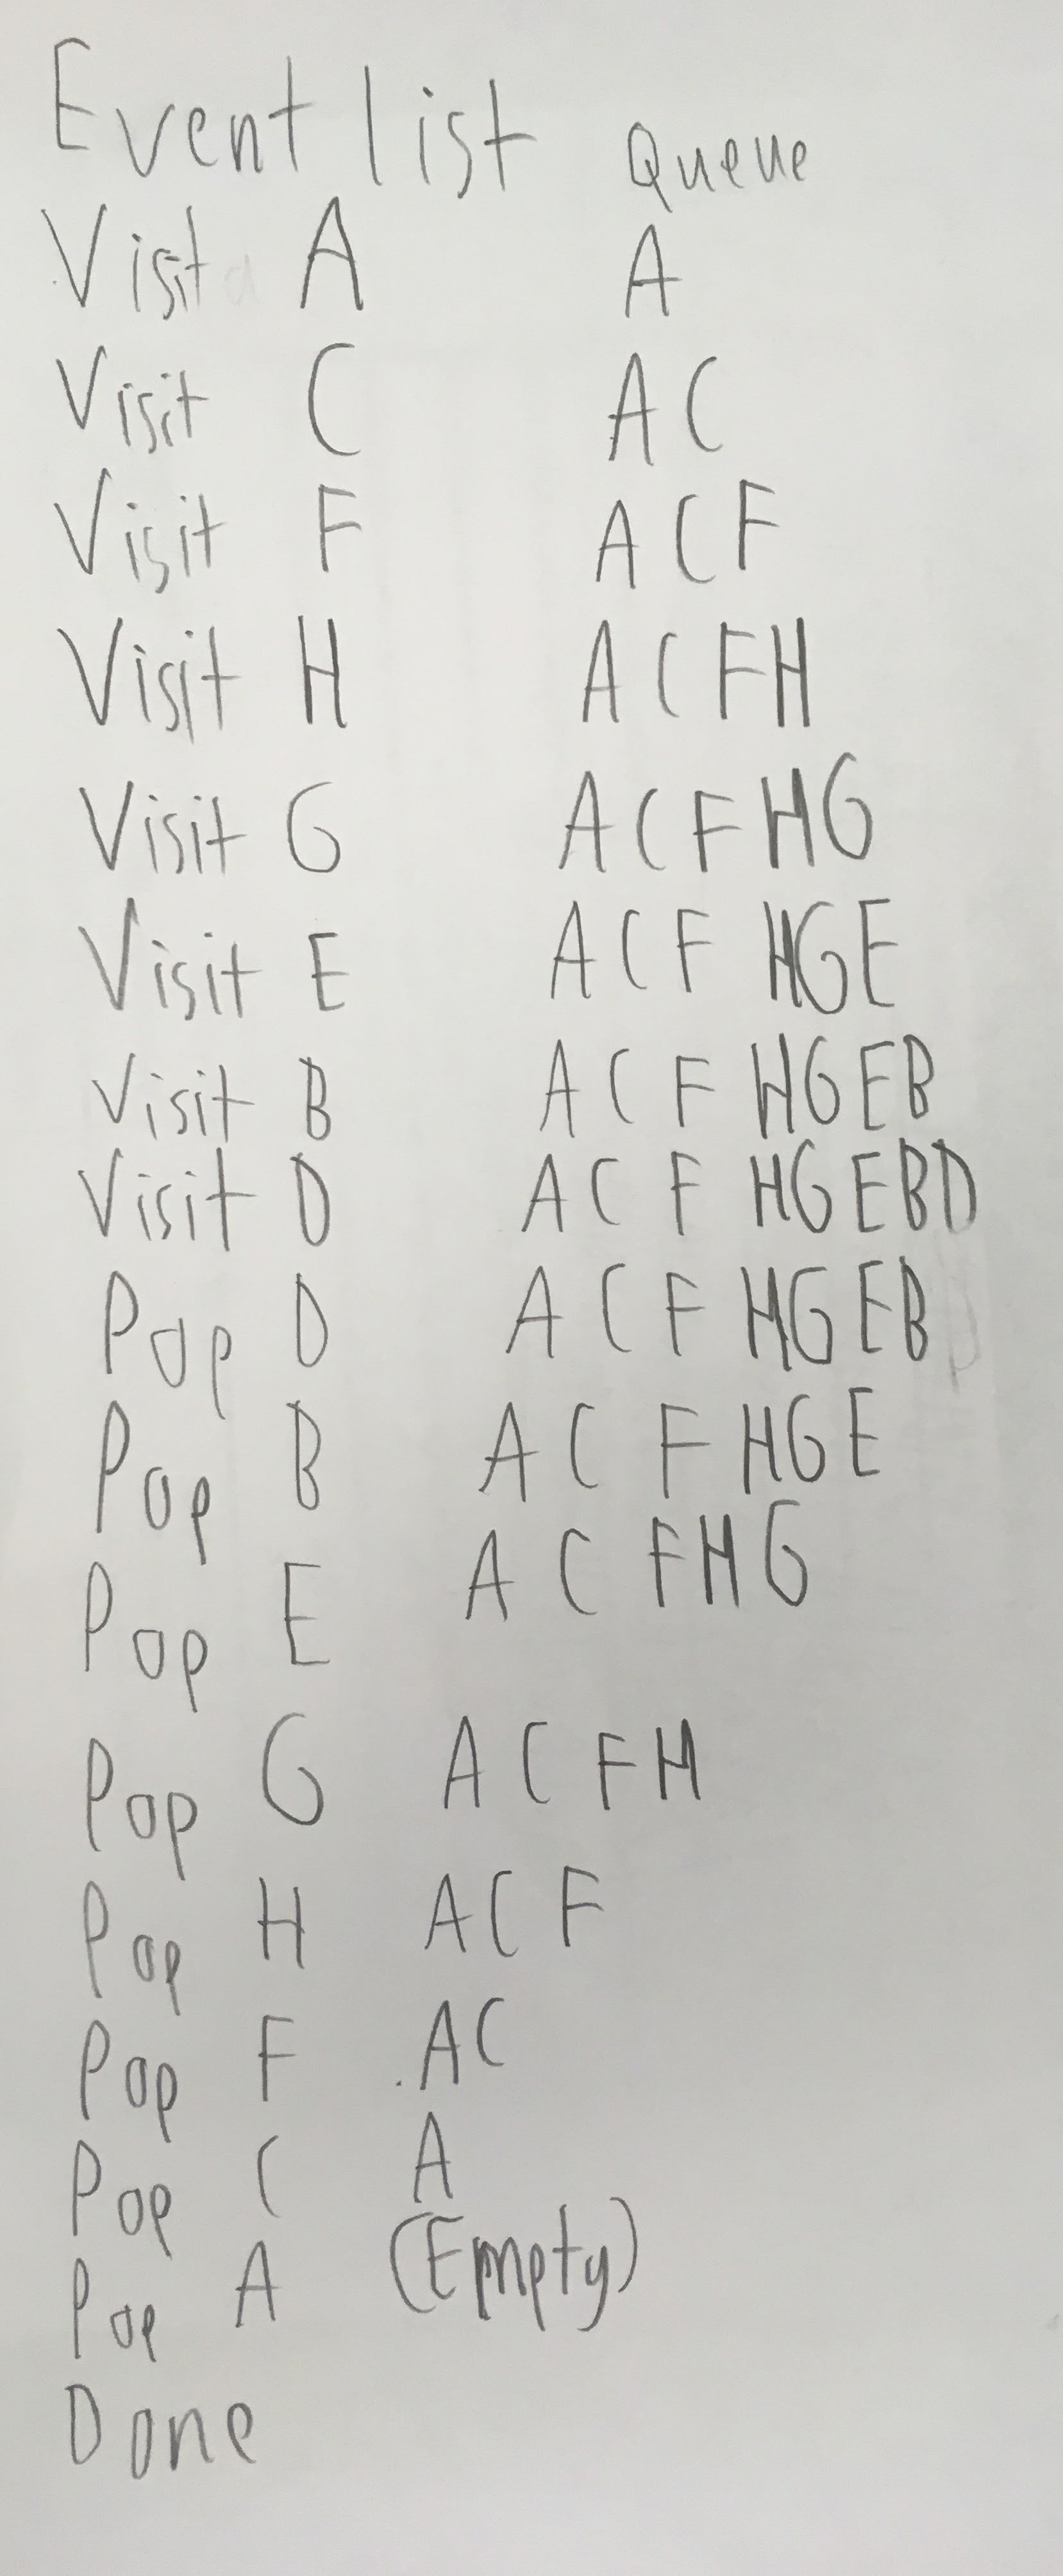 Event list Queue
Visit A A
Visit C AC
Visit F ACF
Visit H ACFH
Visit G ACFHG
Visit E ACF HGE
Visit B ACF HGEB
Visit D ACF HGEBD
Pop D ACF HGEB
Pop B ACF HGE
Pop E ACFHG
Pop G ACFH
Pop H ACF
Pop F AC
Pop C A
Pop A (Empty)
Done